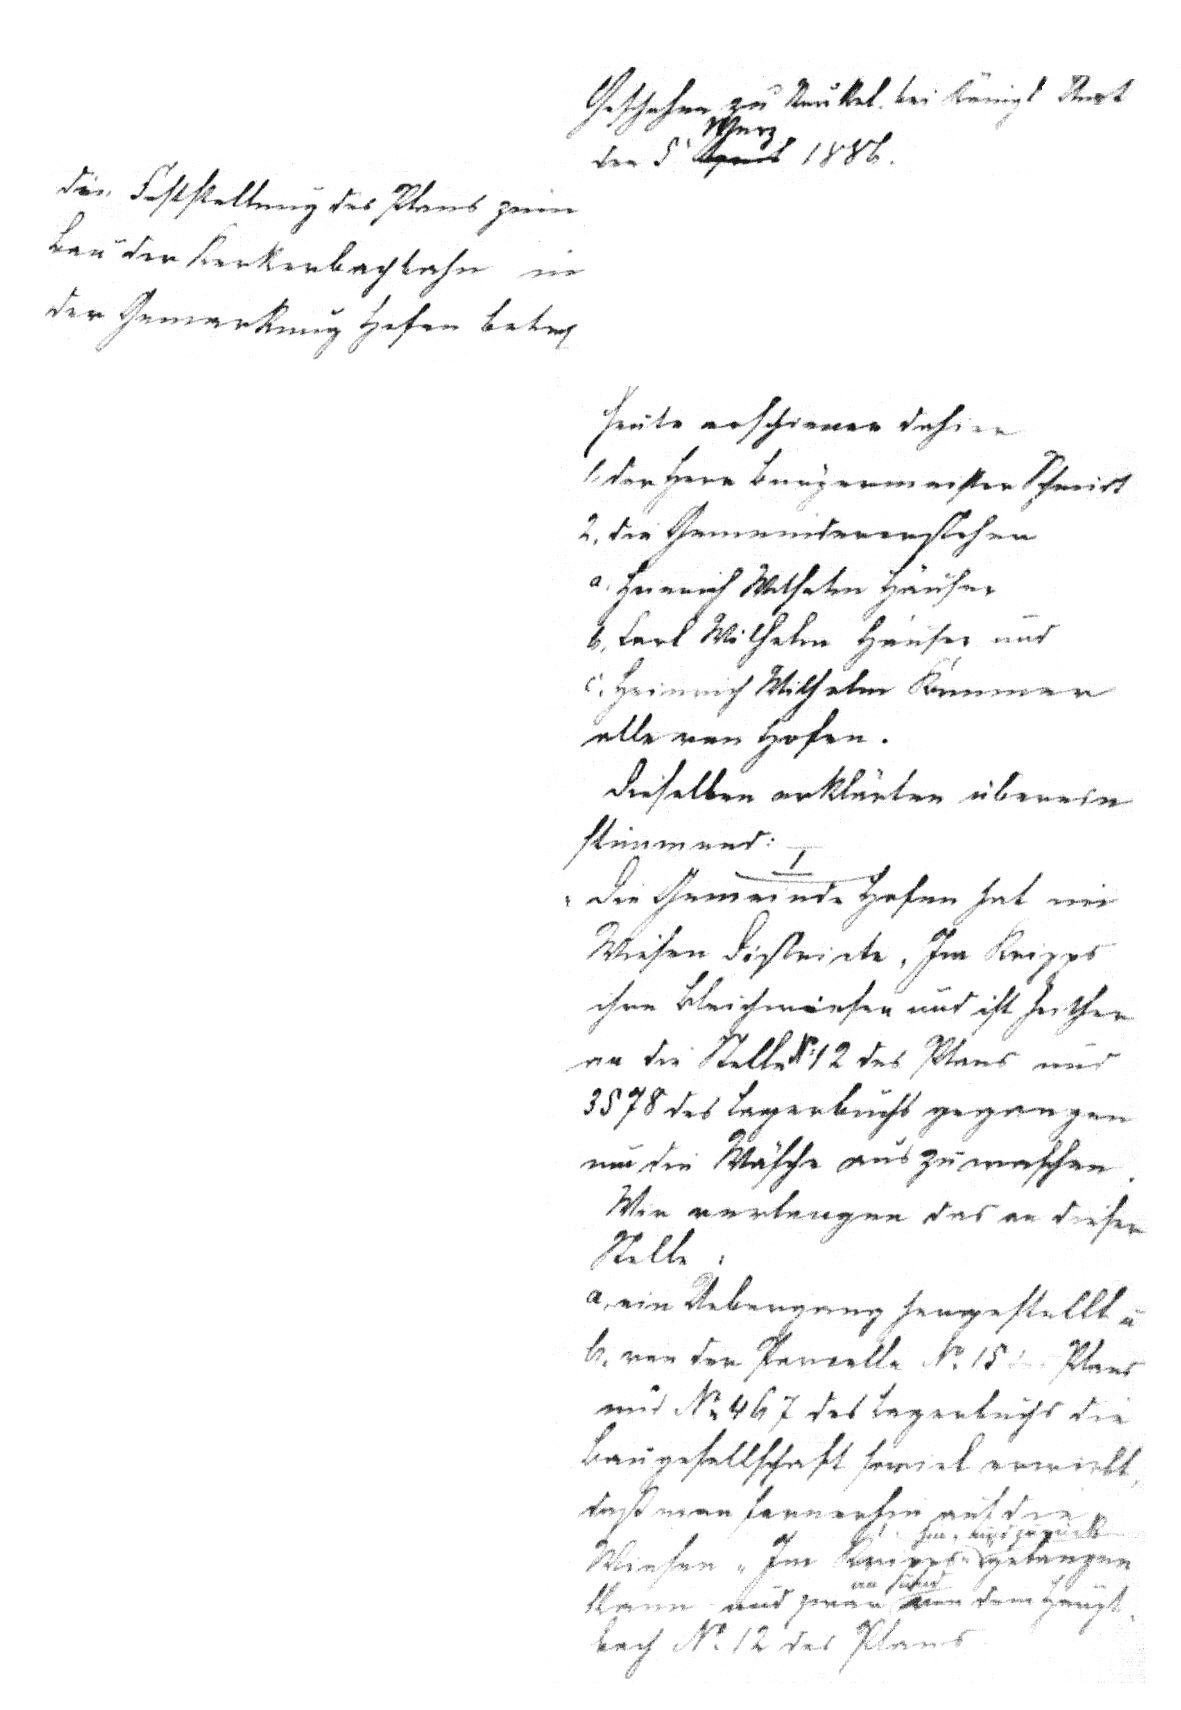 Geschehen zu Runkel bei Königl Amt
März
den 5t April 1886.
die Feststellung des Plans zum
Bau der Kerkerbachbahn in
der Gemarkung Hofen betr
Heute erschienen dahier
1, der Herr Bürgermeister Schmidt
2, die Gemeindevorsteher
a. Heinrich Wilhelm Häuser
b, Carl Wilhelm Häuser und
c, Heinrich Wilhelm Krämmer
alle von Hofen.
Dieselben erklärten überein
stimmend:
1
Die Gemeinde Hofen hat im
Wiesen Districte „Im Kripps
ihre Bleichwiesen und ist seither
an die Stelle No 12 des Plans und
3578 des Lagerbuchs gegangen
um die Wäsche auszuwaschen.
Wir verlangen das an dieser
Stelle:
a, ein Uebergang hergestellt u
b, von der Parcelle No. 15 des Plans
und No. 467 des Lagerbuchs die
Baugesellschaft soviel erwirbt,
daß man fernerhin auf die
hin und zurück
Wiesen „Im Kripps“ gelangen
kann und zwar von dem
bach No. 12 des Plans